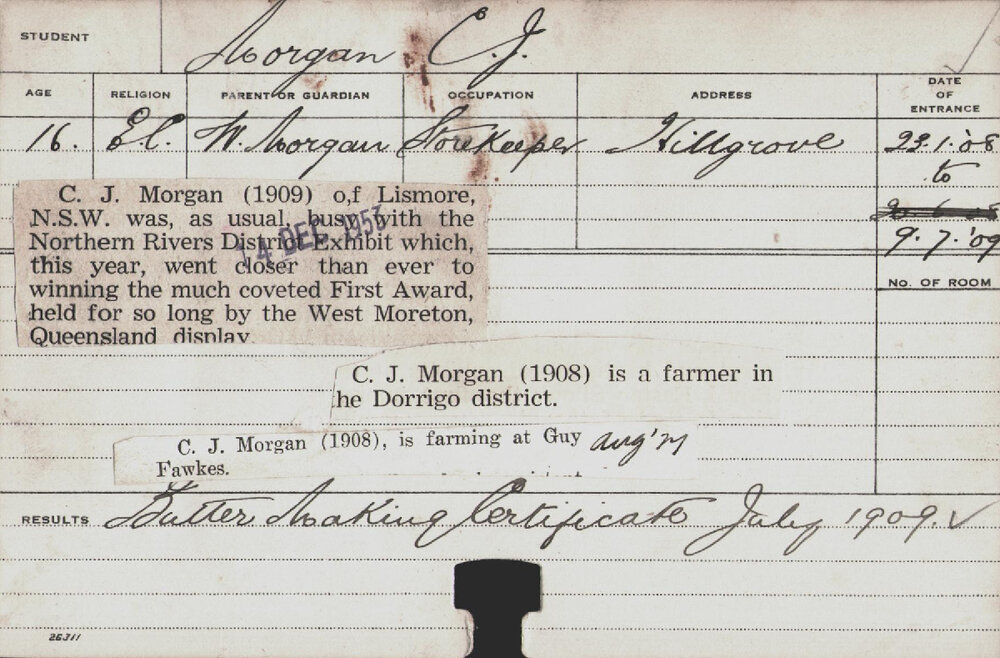 STUDENT Morgan C.J.
AGE RELIGION PARENT OR GUARDIAN OCCUPATION ADDRESS DATE OF ENTRANCE
16. E.C. W. Morgan Storekeeper Hillgrove 23.1.'08
to
9.7.'09
No. OF ROOM
C. J. Morgan (1909) o,f Lismore,
N.S.W. was, as usual, busy with the
Northern Rivers District Exhibit which,
this year, went closer than ever to
winning the much coveted First Award,
held for so long by the West Moreton,
Queensland display.
14 DEC 1953
C. J. Morgan (1908) is a farmer in
he Dorrigo district.
C. J. Morgan (1908), is farming at Guy
Fawkes.
RESULTS Butter Making Certificate July 1909. ✓
26311